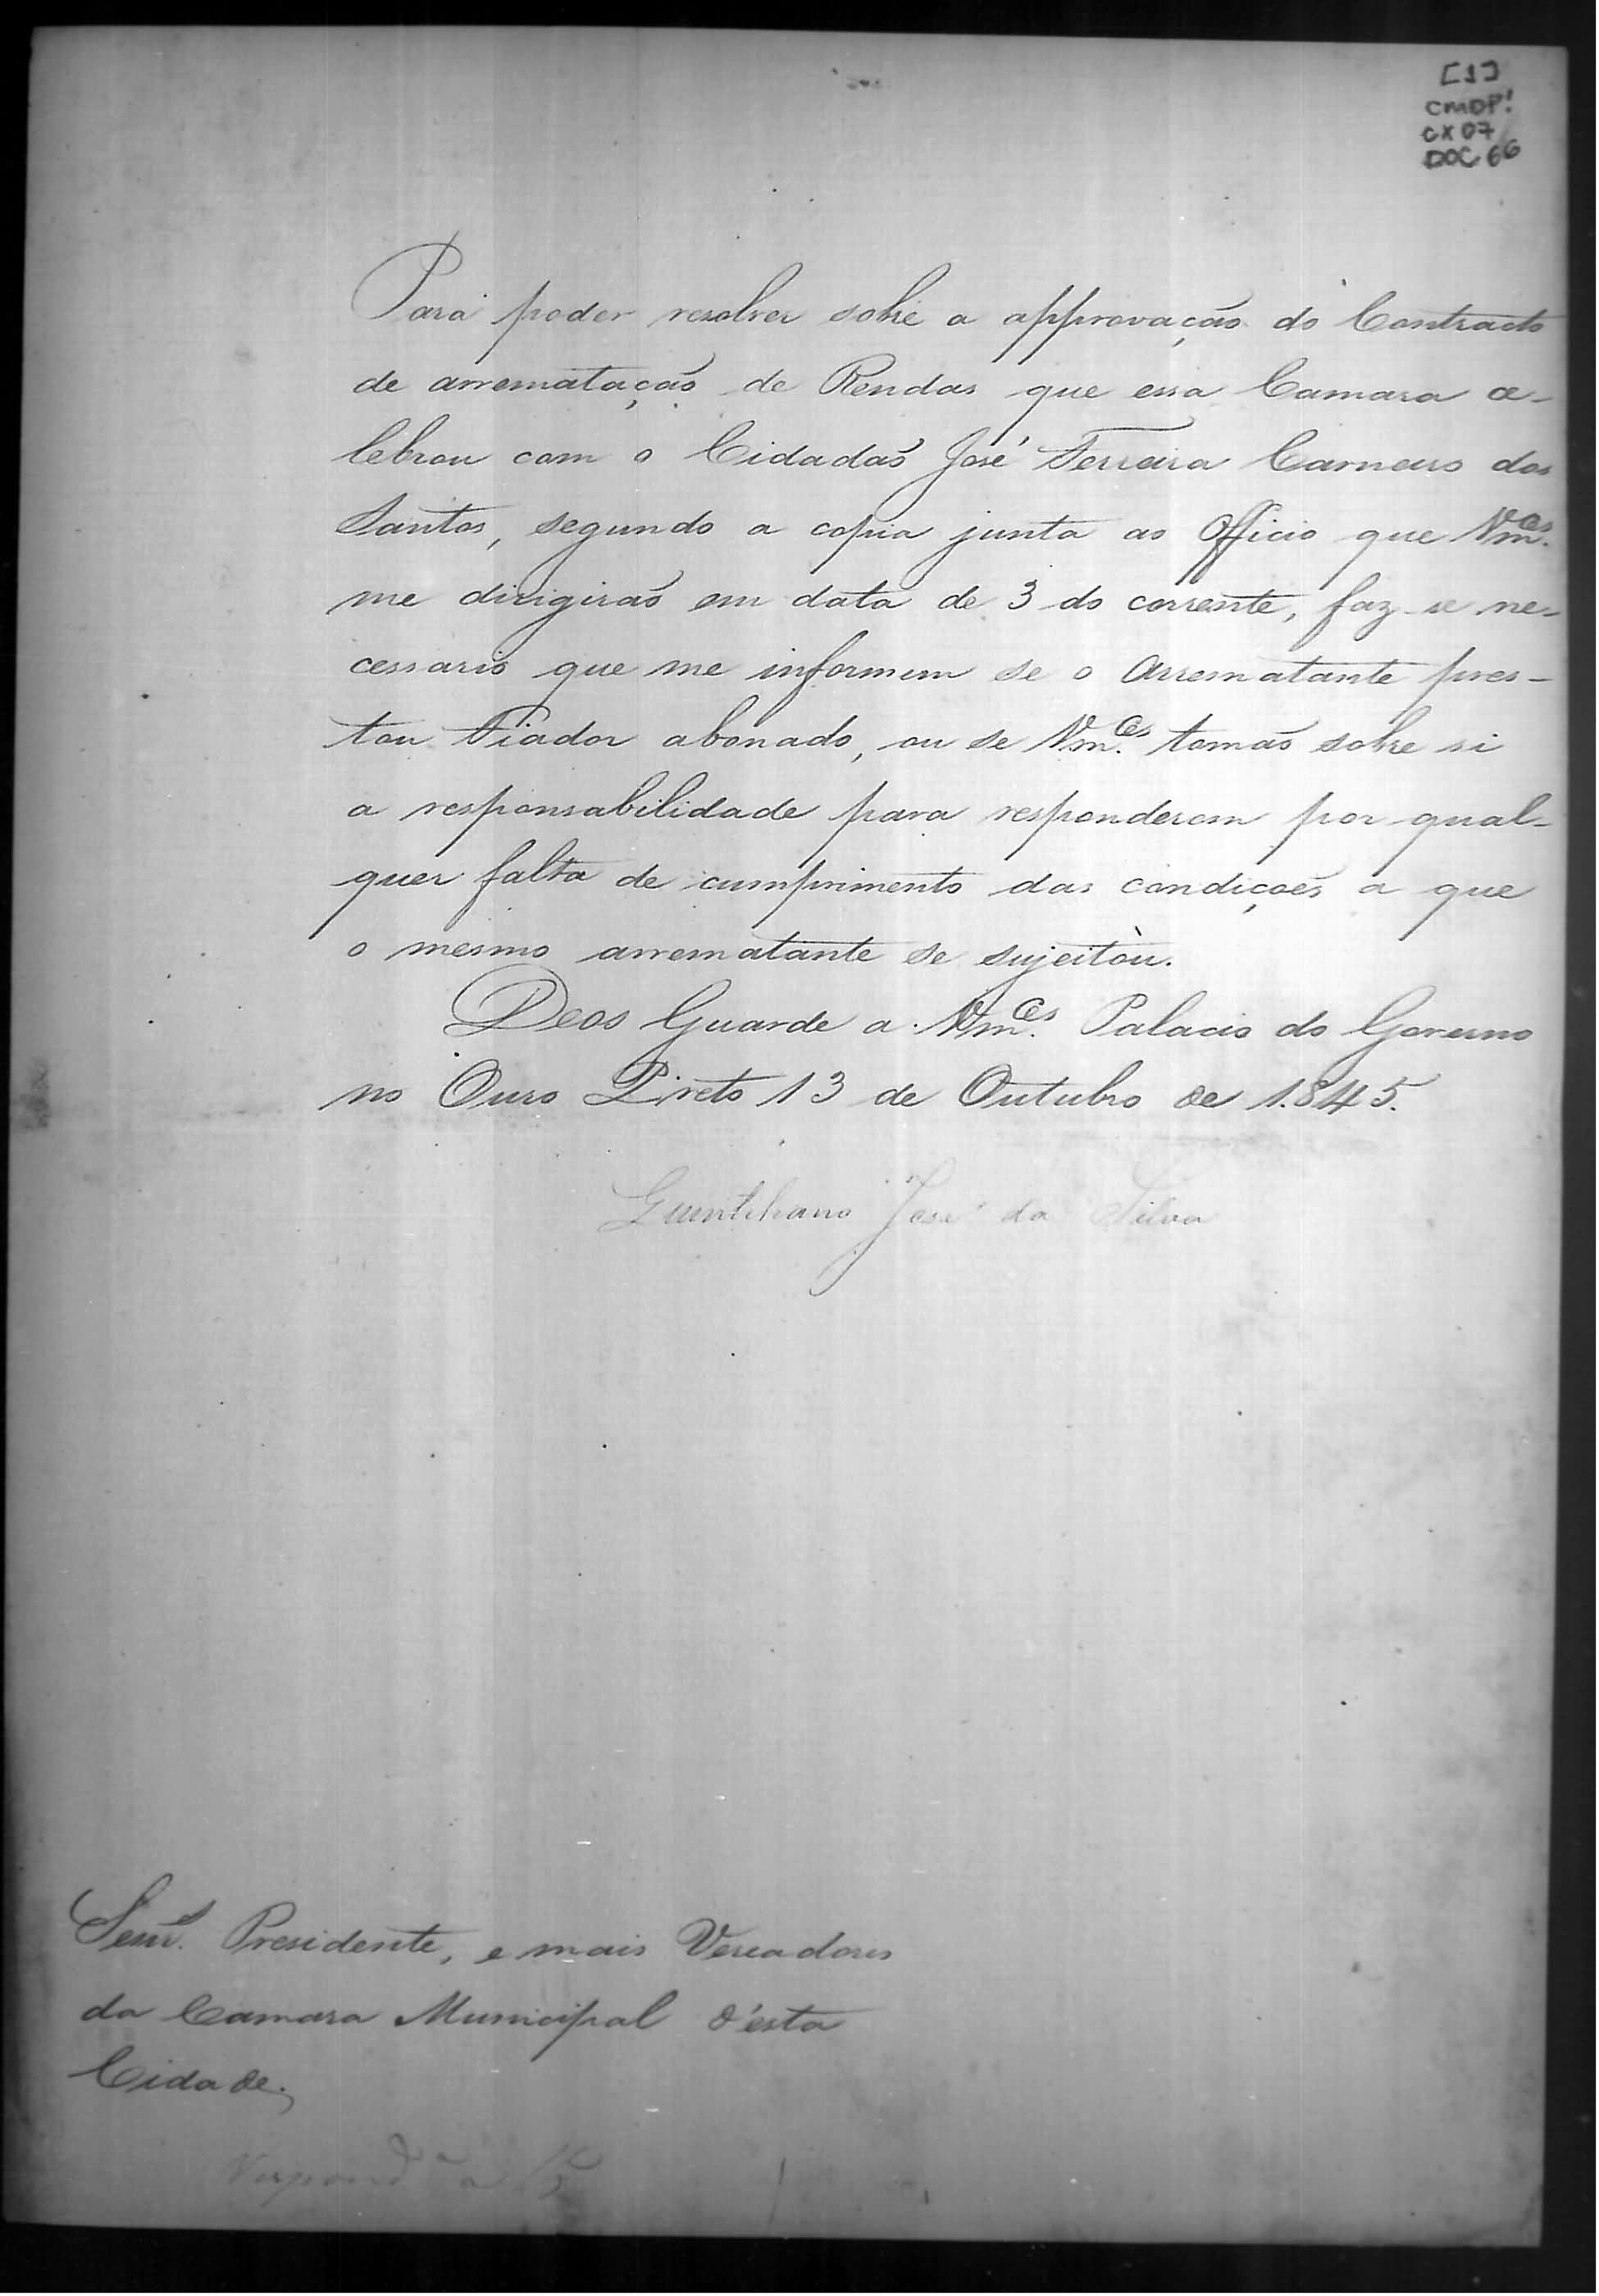 [1]
CMOP!
CX 07
DOC 66
Para poder resolver sobre a approvação do Contracto
de arrematação de Rendas que essa Camara ce-
lebrou com o Cidadaõ José Ferreira Carneiro dos
Santos, segundo a copia junta ao Officio que Vm.ces
me dirigiraõ em data de 3 do corrente, faz-se ne-
cessario que me informem se o Arrematante pres-
tou Fiador abonado, ou se Vm.ces tomaõ sobre si
a responsabilidade para responderem por qual-
quer falta de cumprimento das condiçoẽs a que
o mesmo arrematante se sujeitou.
Deos Guarde a Vm.ces Palacio do Governo
no Ouro Preto 13 de Outubro de 1.845.
Quintiliano José da Silva
Senr.s Presidente, e mais Vereadores
da Camara Municipal d'esta
Cidade.